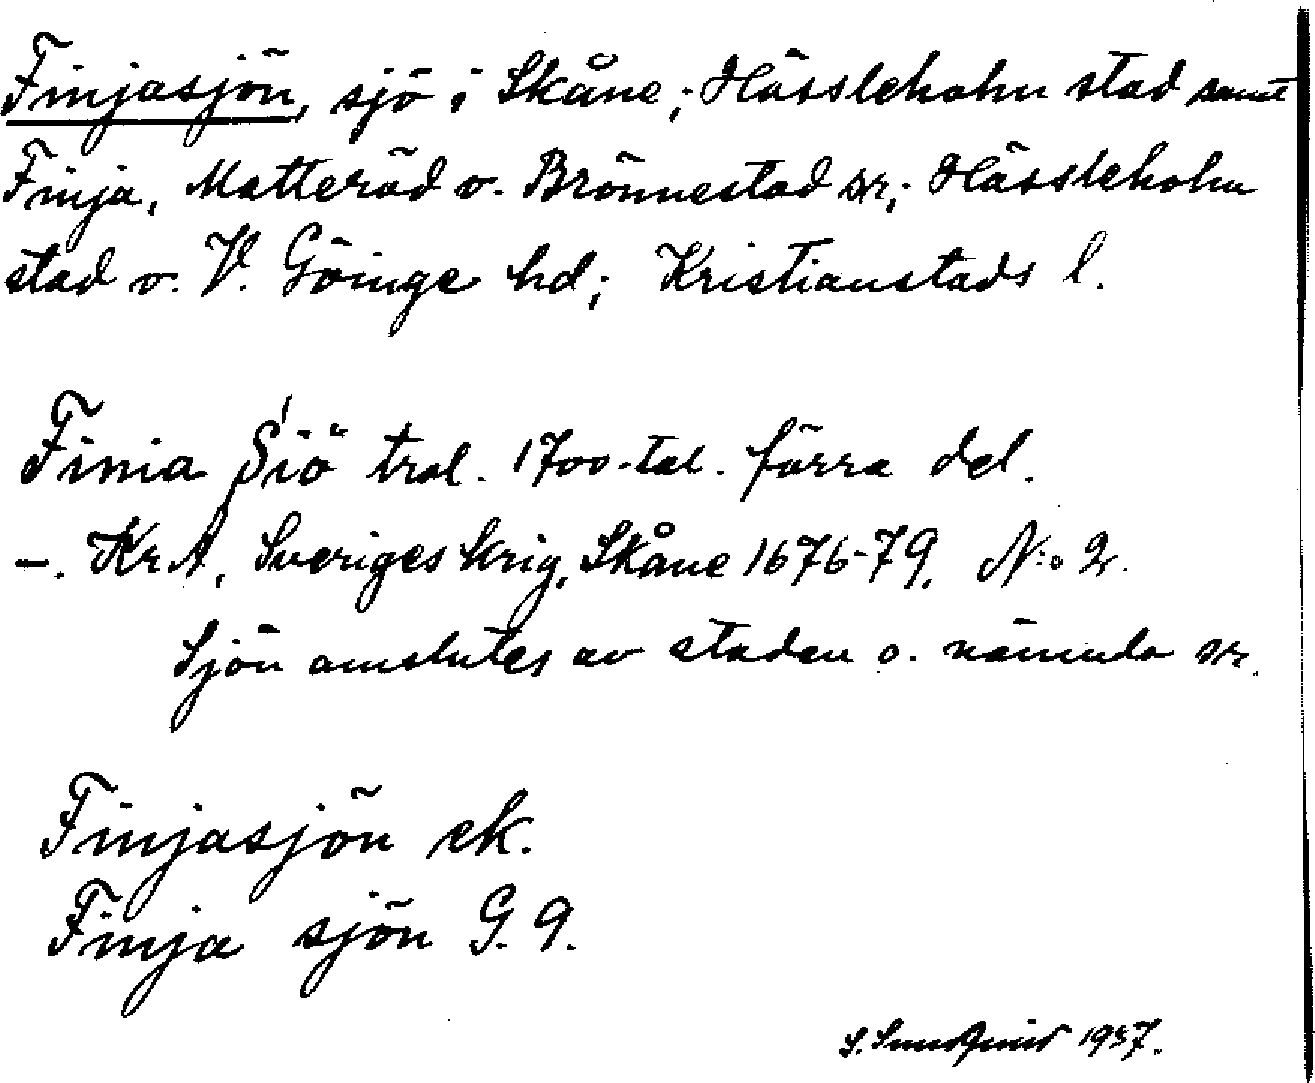 Finjasjön, sjö i Skåne; Hässleholm stad samt
Finja, Matteröd o. Brönnestad sr; Hässleholm
stad o. V. Göinge hd; Kristianstads l.
Finia Siö trol. 1700-tal. förra del.
-. KrA, Sveriges krig, Skåne 1676-79. N:o 2.
Sjön omslutes av staden o. nämnda sr.
Finjasjön ek.
Finja sjön G. 9.
S. 1937.